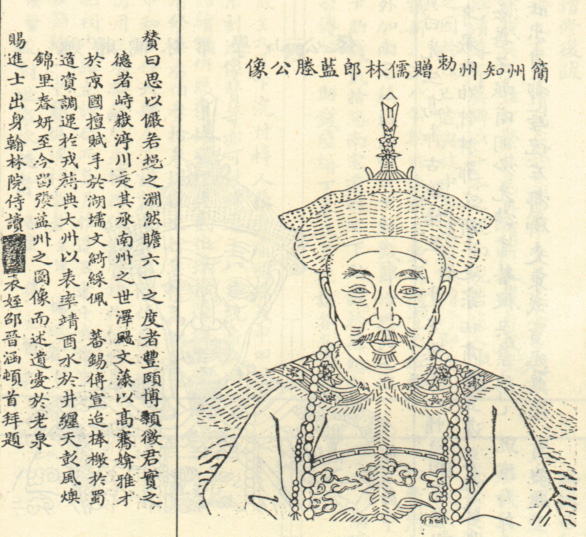 簡州知州勅贈儒林郎藍塍公像
贊曰思以儼若挹之淵然瞻六一之度者豐頤博顙徵君實之
德者峙嶽渟川是其承南州之世澤颺文藻以高騫掞雅才
於京國擅賦手於湖壖文綺綵佩 番錫傳宣迨捧檄於蜀
道資調運於戎旃典大州以表率靖酉水於井纏天彭風煥
錦里春妍至今留張益州之圖像而述遺愛於老泉
賜進士出身翰林院侍讀
衣姪邵晉涵頓首拜題